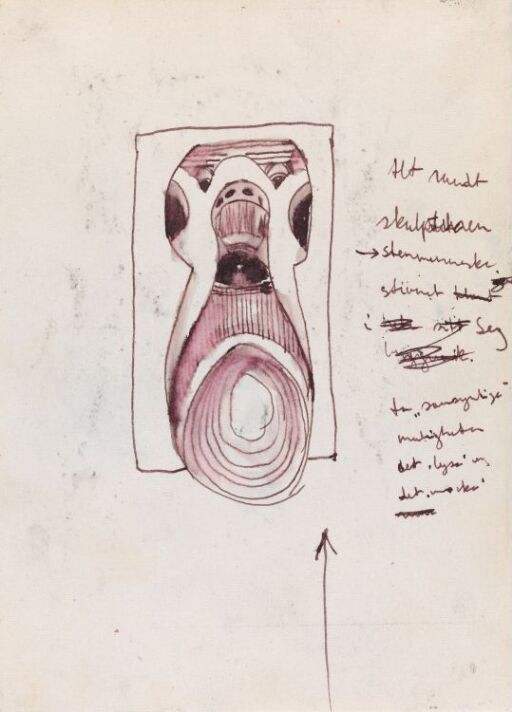 Alt rundt
skulpturen
→ stenmenneske
stivnet
i seg
to "sansynlige"
muligheter
det "lyse" og
det "mørke"